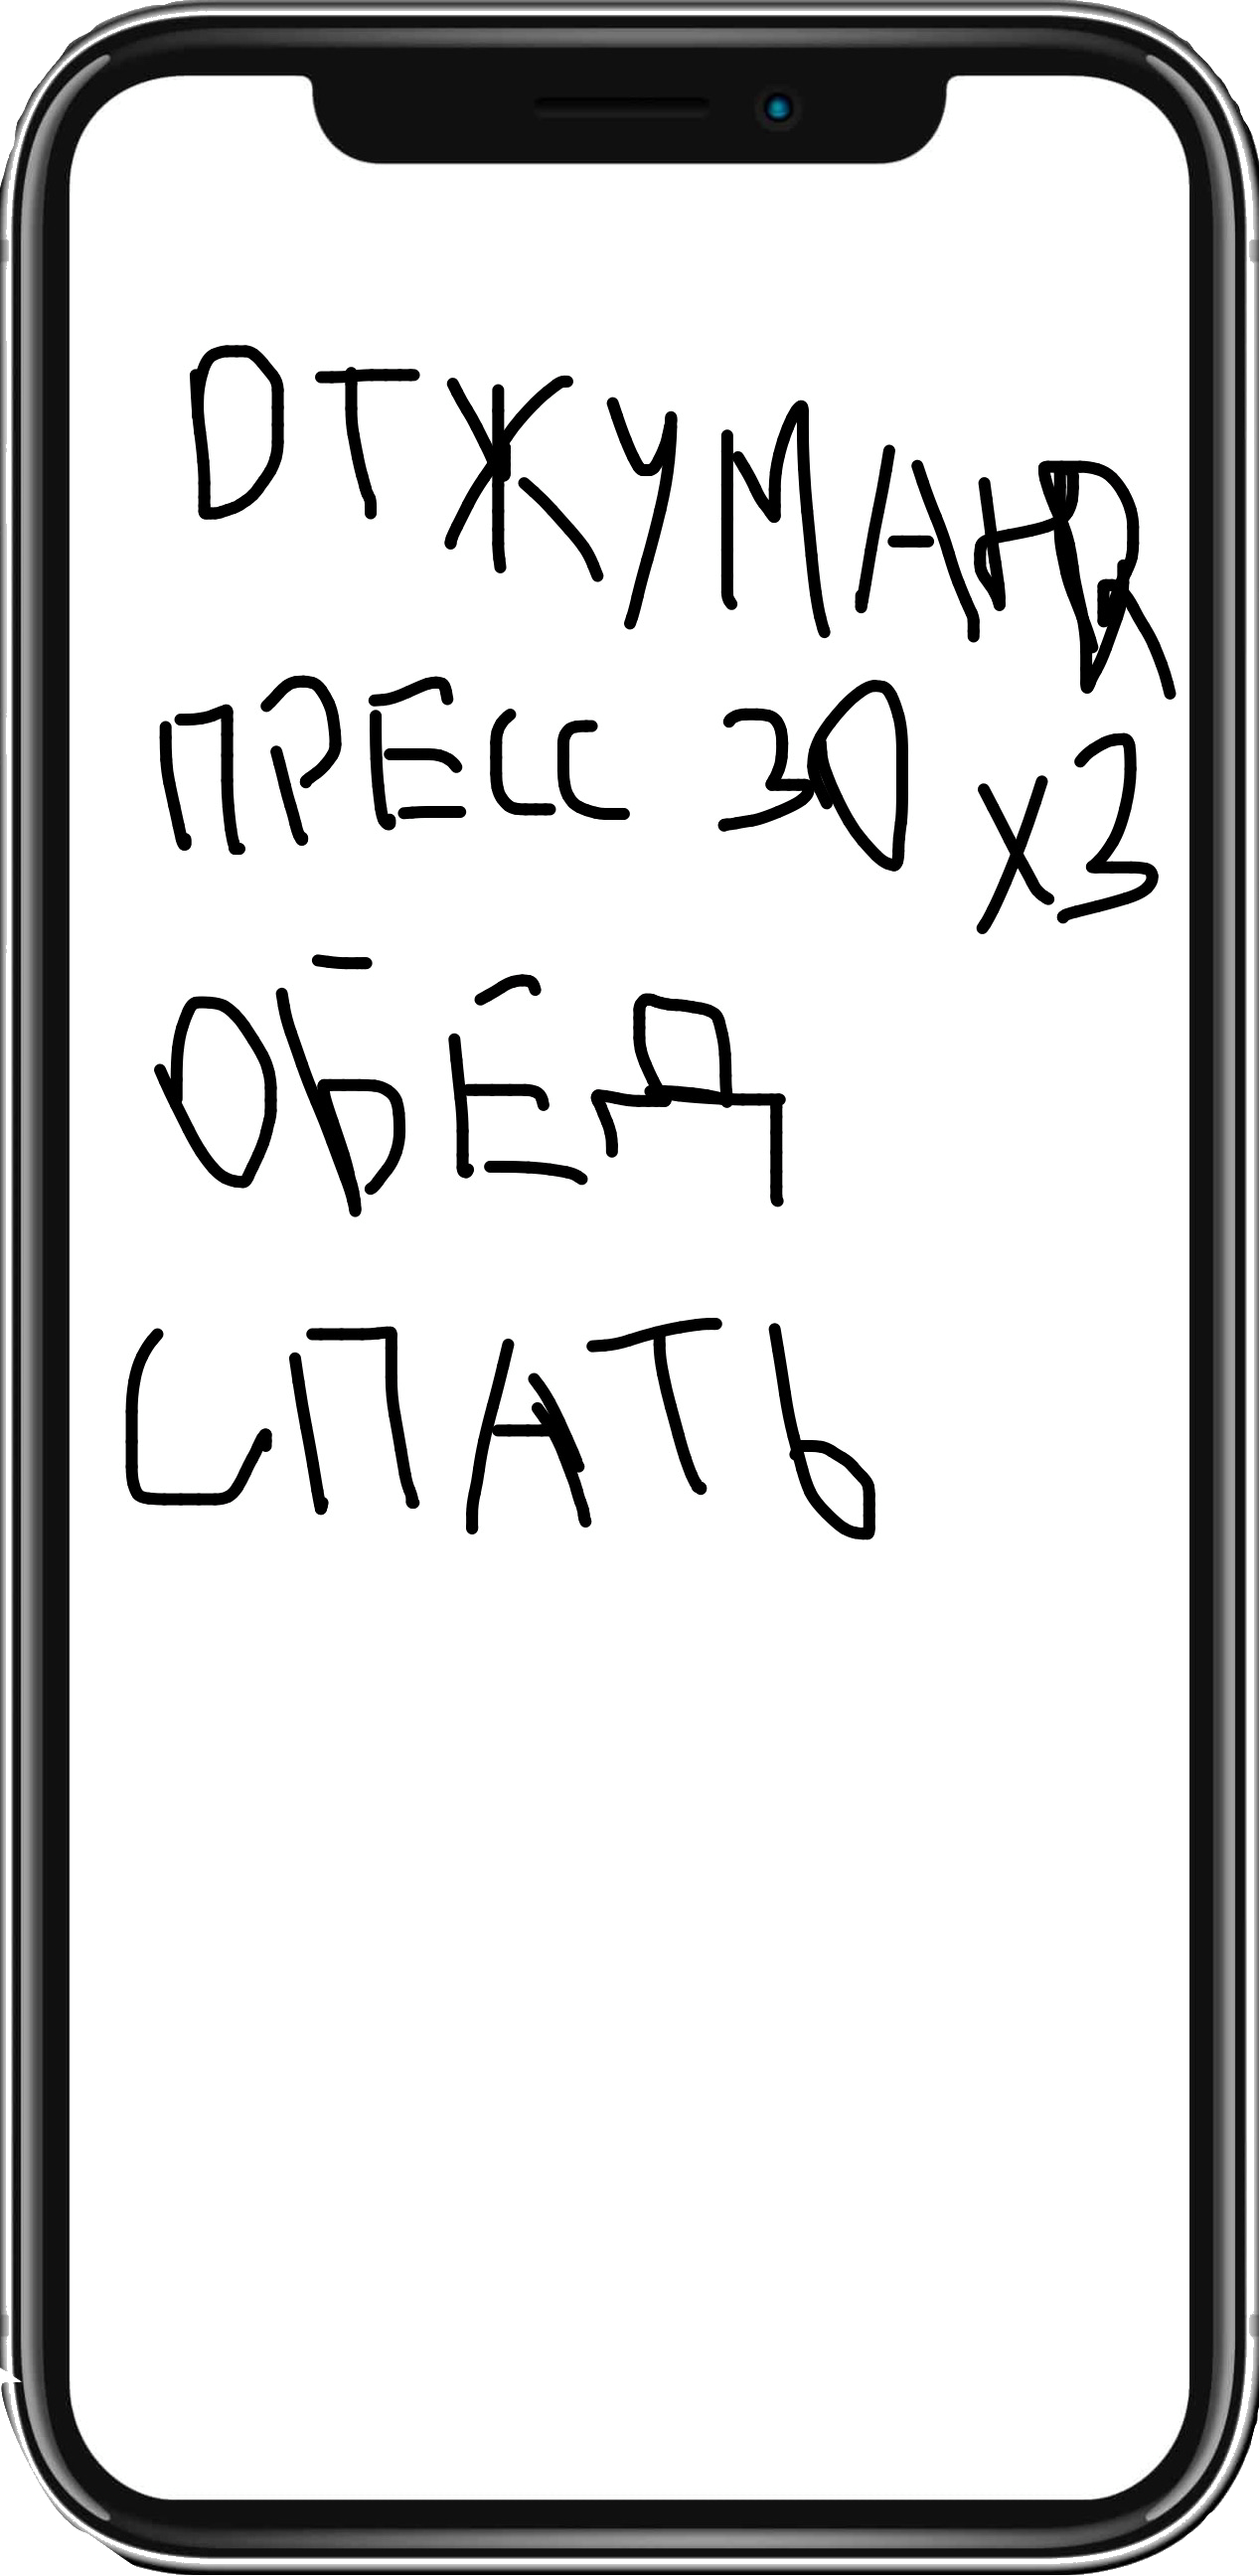 ОТЖУМАНЯ
ПРЕСС 30 X3
ОБЕД
СПАТЬ